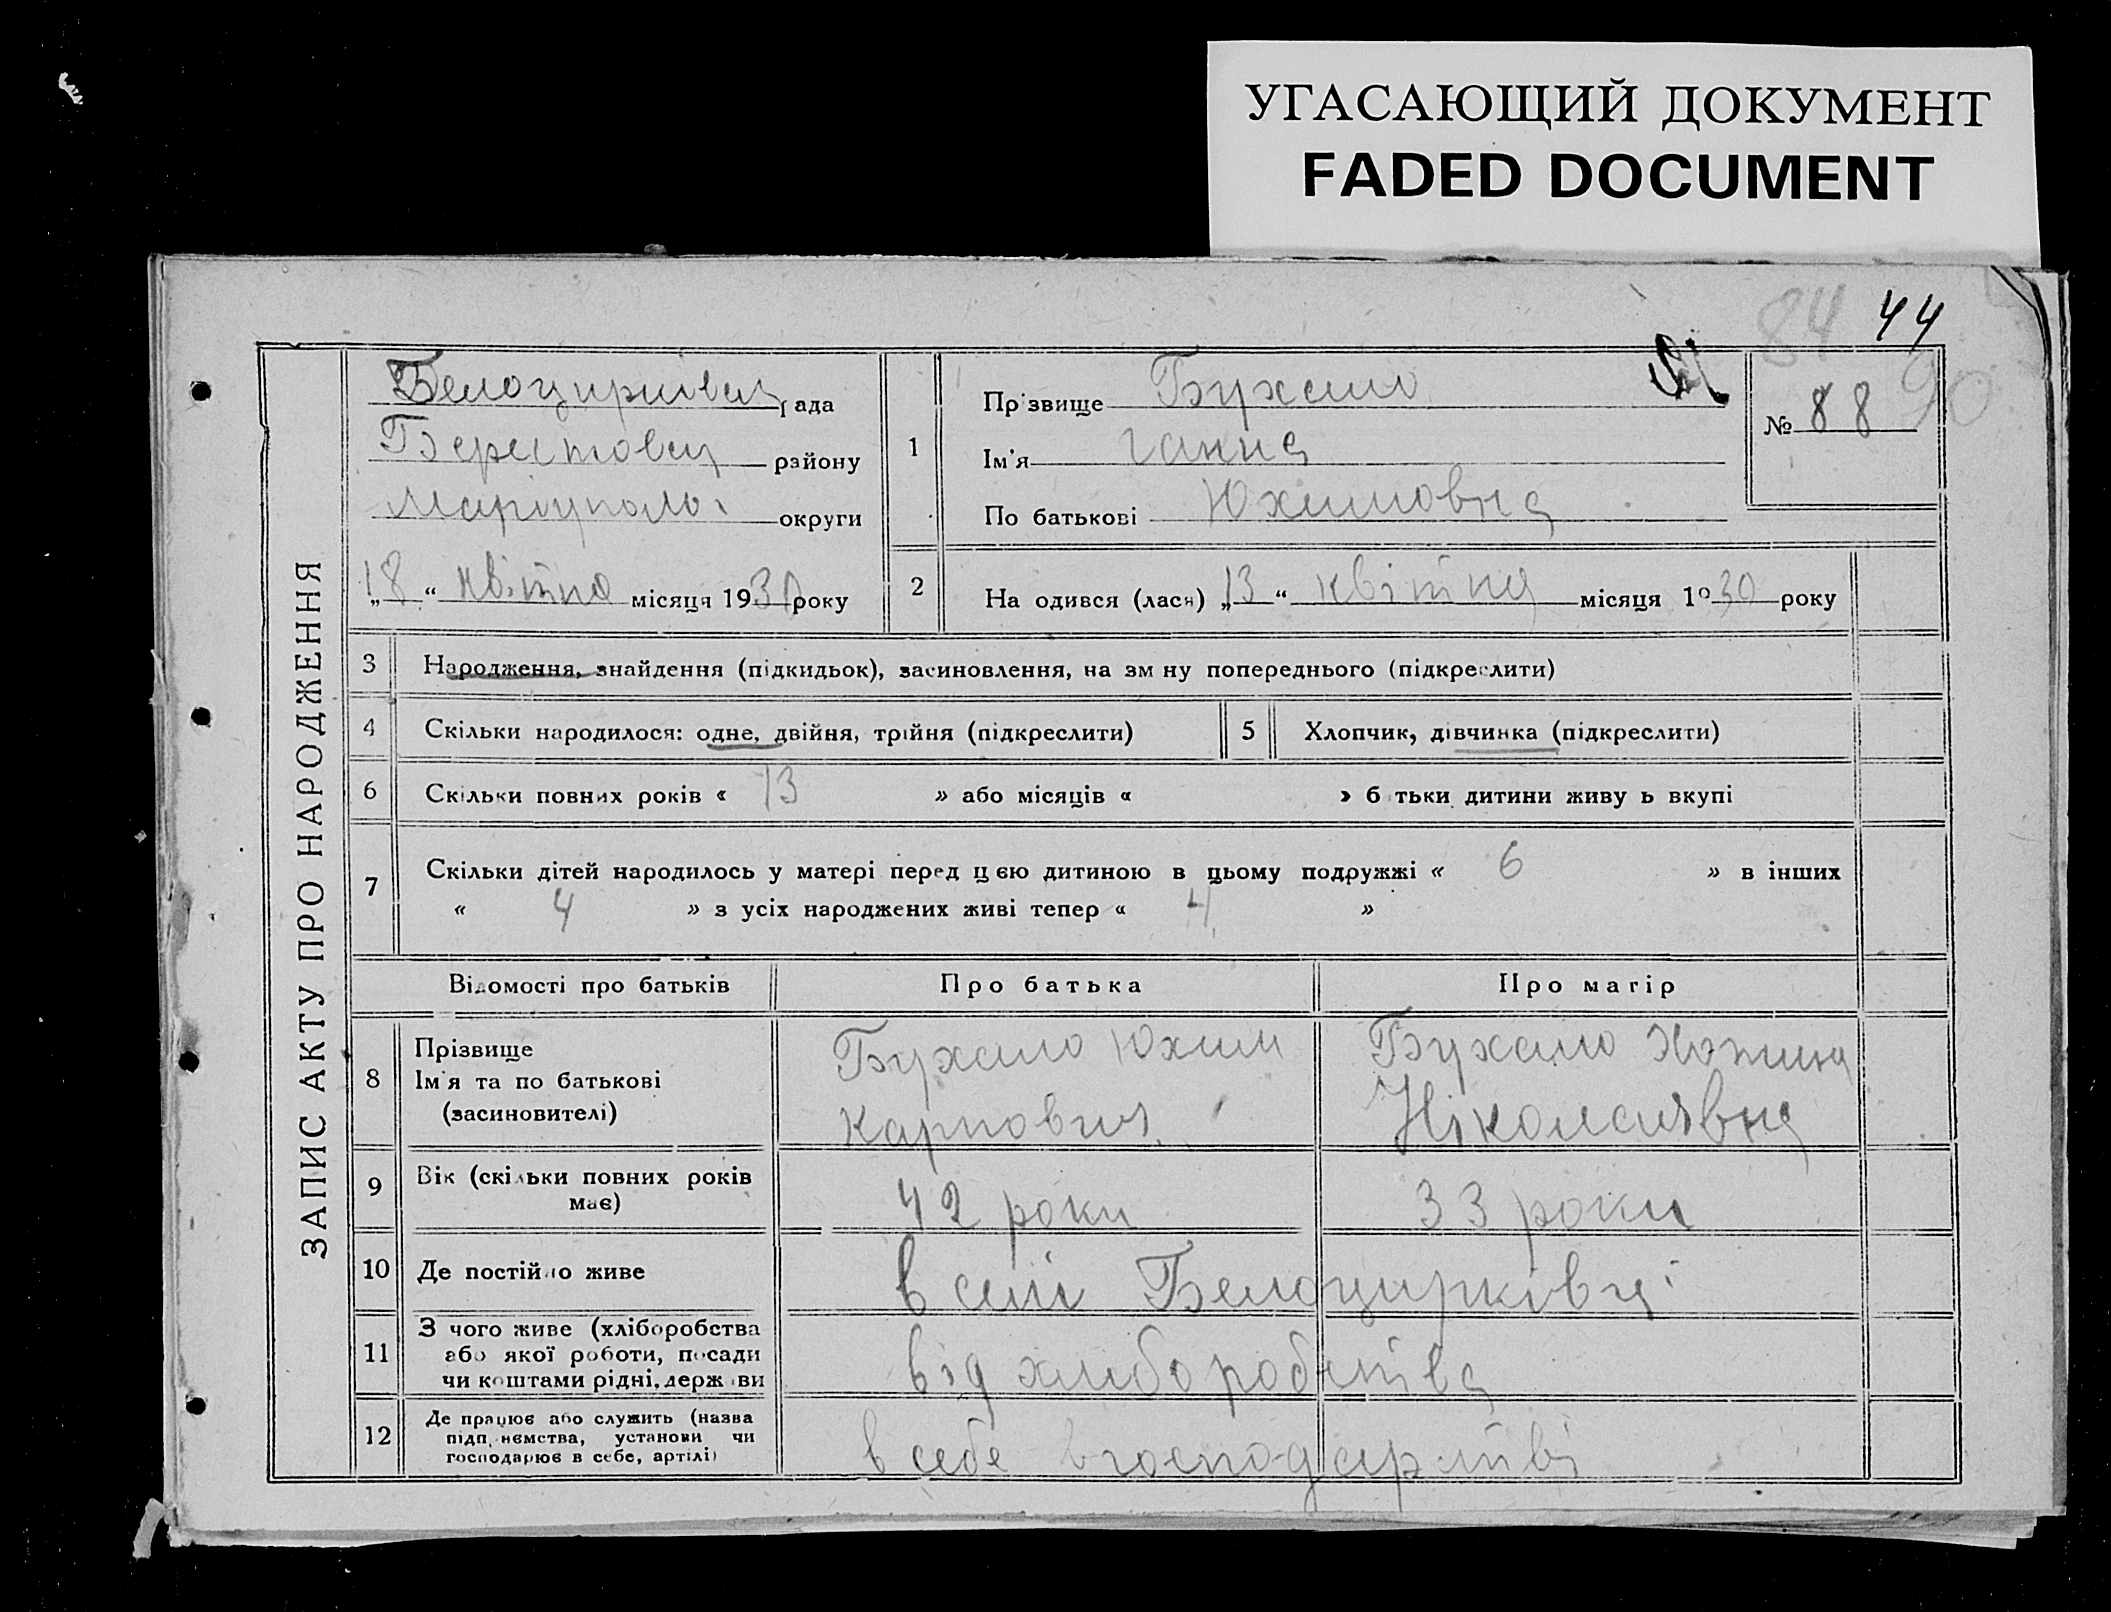 УГАСАЮЩИЙ ДОКУМЕНТ
FADED DOCUMENT
84 44
ЗАПИС АКТУ ПРО НАРОДЖЕННЯ
Белоцирківец рада
Берестовец району
Маріуполь. округи
„18“ квітня місяця 1930 року
1
Прізвище Бухало
Ім'я Ганна
По батькові Юхимовна
№ 88 90
2 На одився (лася) „13“ квітня місяця 1930 року
3 Народження, знайдення (підкидьок), засиновлення, на зм ну попереднього (підкреслити)
4 Скільки народилося: одне, двійня, трійня (підкреслити)
5 Хлопчик, дівчинка (підкреслити)
6 Скільки повних років « 13 » або місяців « » б тьки дитини живу ь вкупі
7 Скільки дітей народилось у матері перед цією дитиною в цьому подружжі « 6 » в інших
« 4 » з усіх народжених живі тепер « 4 »
Відомості про батьків Про батька Про матір
8 Прізвище
Ім'я та по батькові
(засиновителі)
Бухало Юхим
Карпович
Бухало
Ніколаївна
9 Вік (скільки повних років
має)
42 роки 33 роки
10 Де постійно живе в селі Белоцирківці
11 З чого живе (хліборобства
або якої роботи, посади
чи коштами рідні, держ ви
від хліборобства
12 Де працює або служить (назва
підп ємства, установи чи
господарює в себе, артілі)
в себе в господарстві